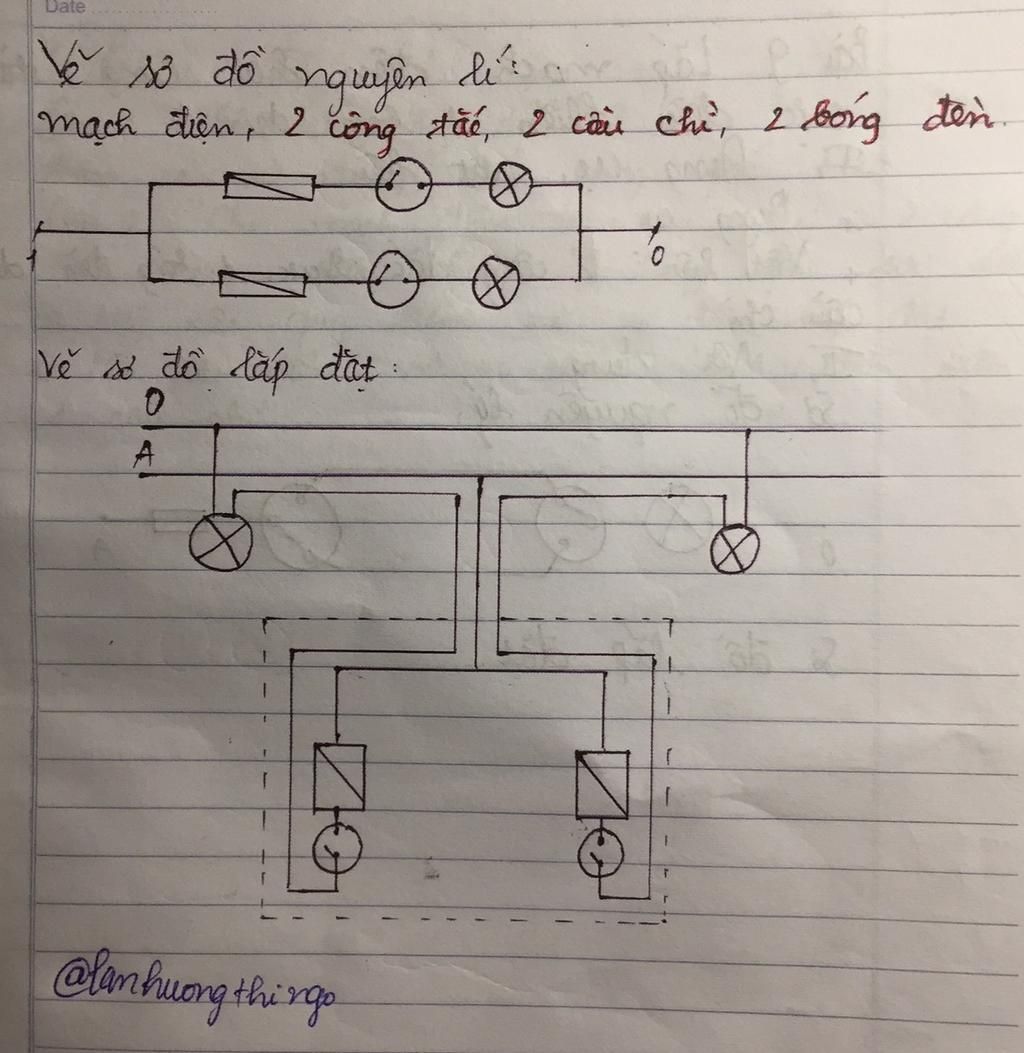 Date
Vẽ sơ đồ nguyên lí:
mạch điện, 2 công tắc, 2 cầu chì, 2 bóng đèn.
0
Vẽ sơ đồ lắp đặt:
O
A
@lanhuongthingo